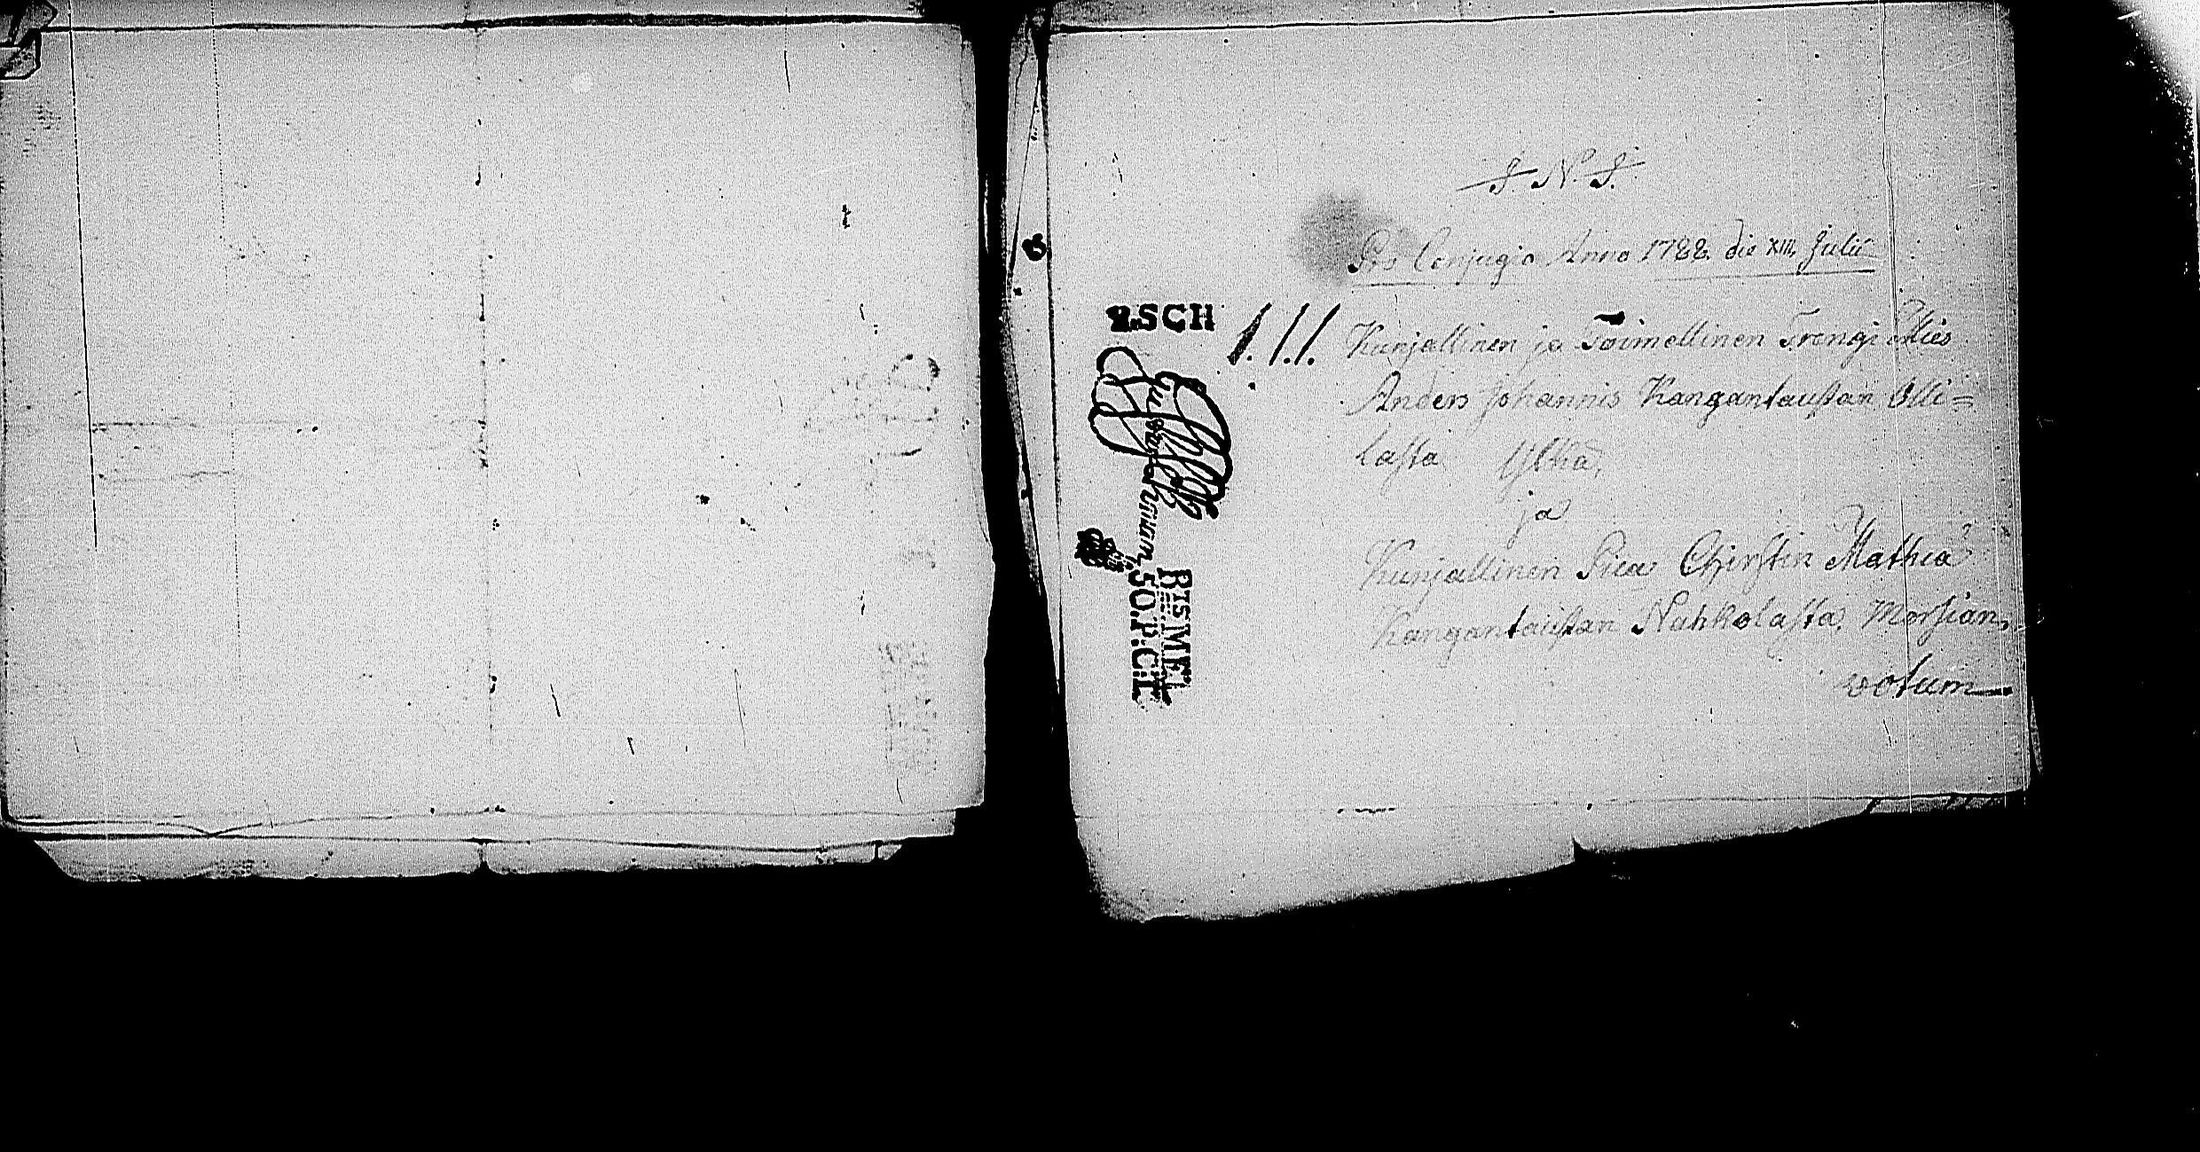 J. N. J.
Pro Conjugio Anno 1788. die XIII. Julii
R.SCH
1.1.1.
Kunjallinen ja Toimellinen Trengi Mies
Anders Johannis Kangantaustan Olli=
lasta Ylkä,
ja
Kunjallinen Pica Chirstin Mathiæ
Kangantaustan Nuhkolasta Morsian,
votum
50.P.C:L